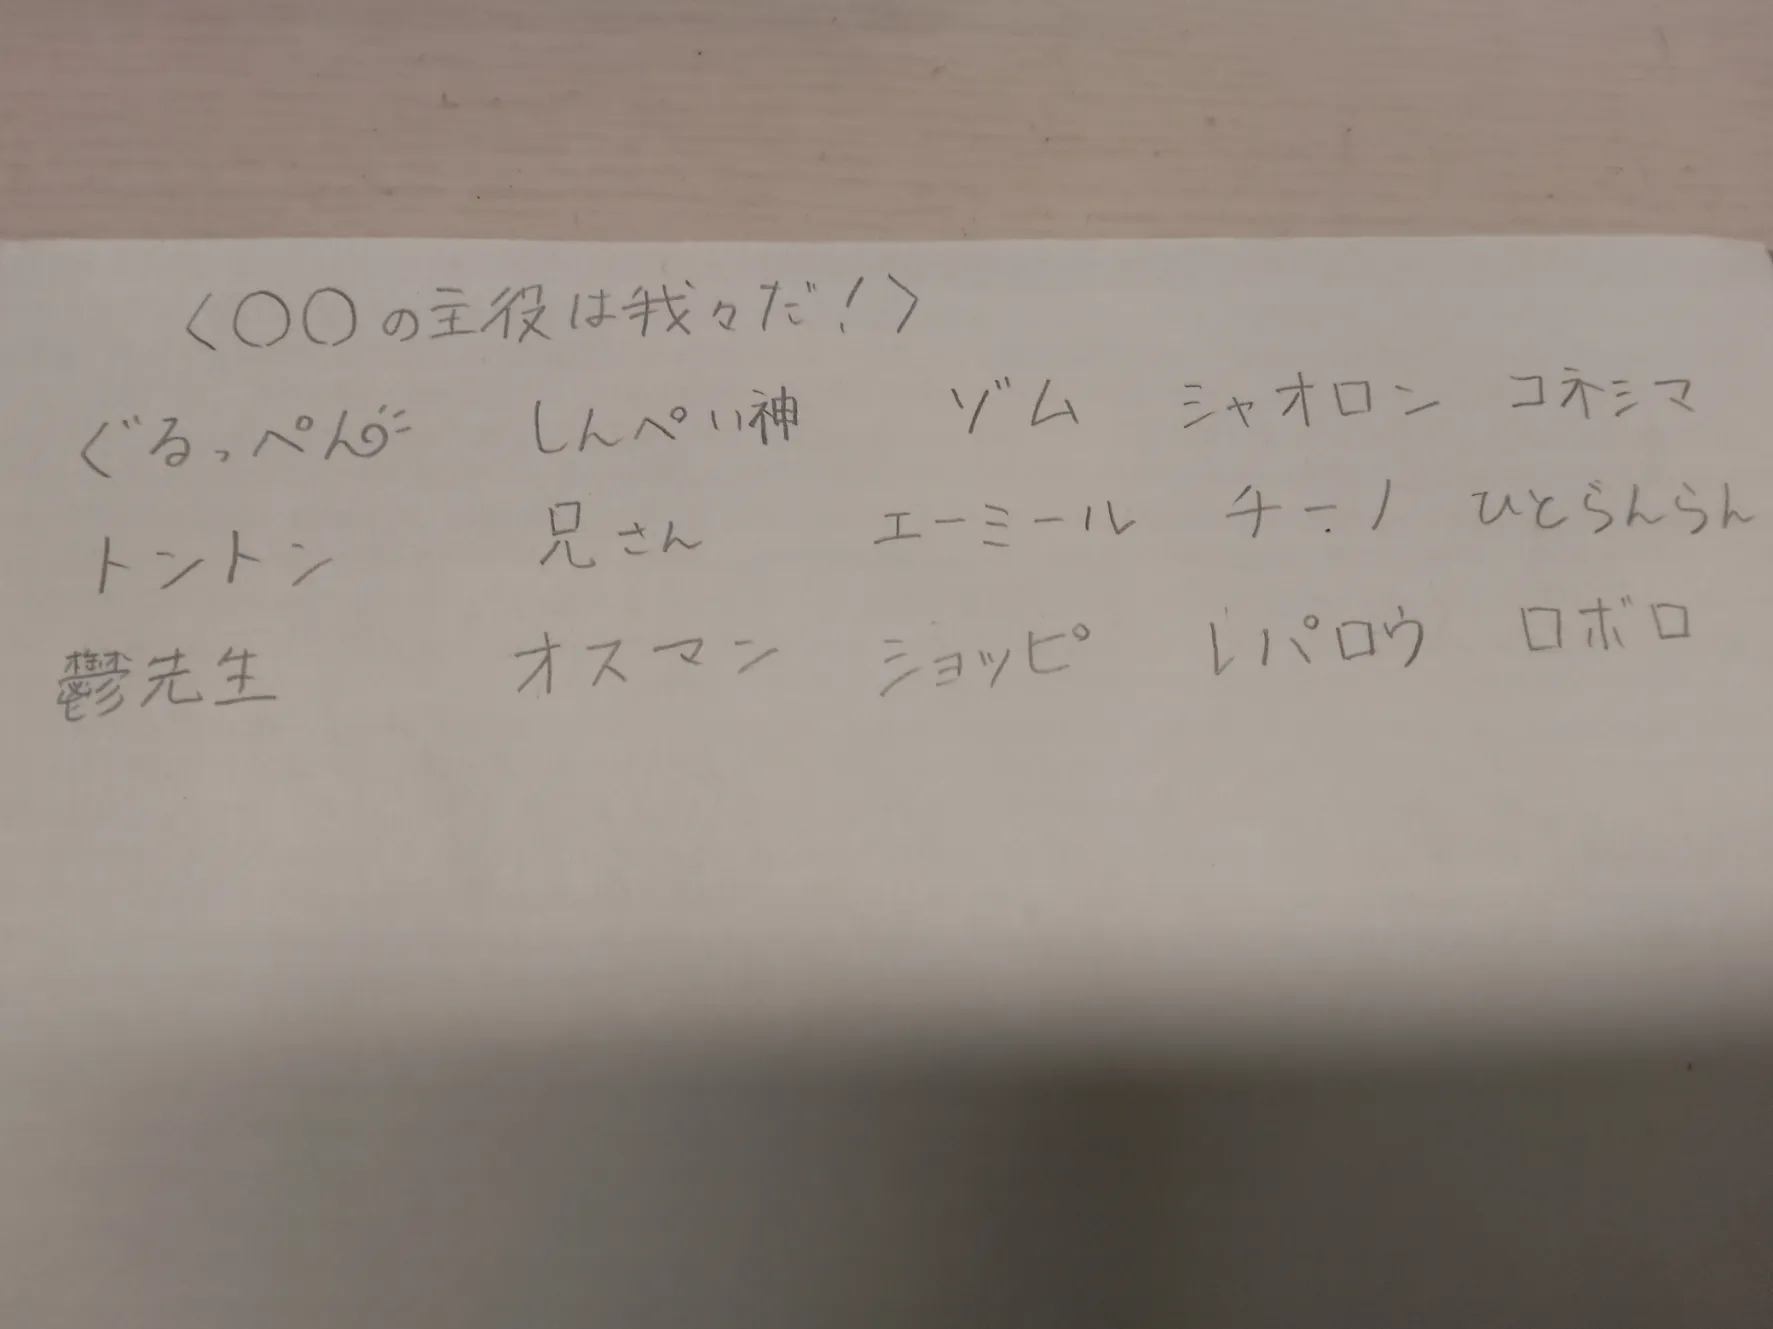 〈〇〇の主役は我々だ！〉
ぐるっぺん しんぺい神 ゾム シャオロン コネシマ
トントン 兄さん エーミール チーノ ひとらんらん
鬱先生 オスマン ショッピ レパロウ ロボロ